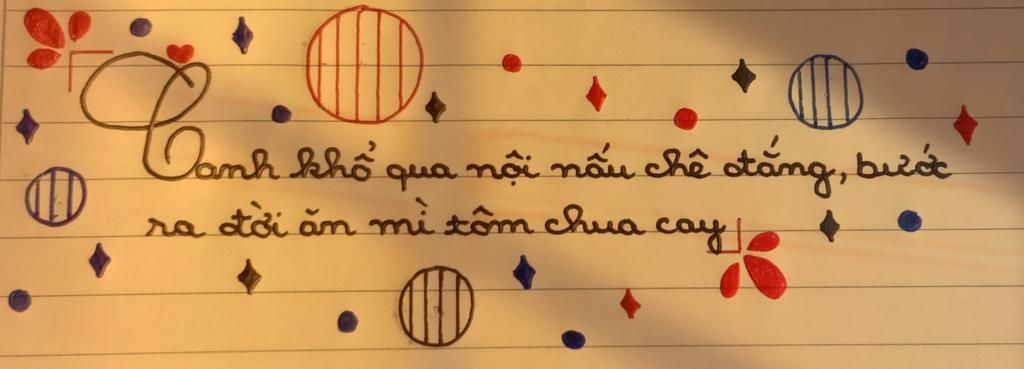 Canh khổ qua nội nấu chê đắng, bước
ra đời ăn mì tôm chua cay